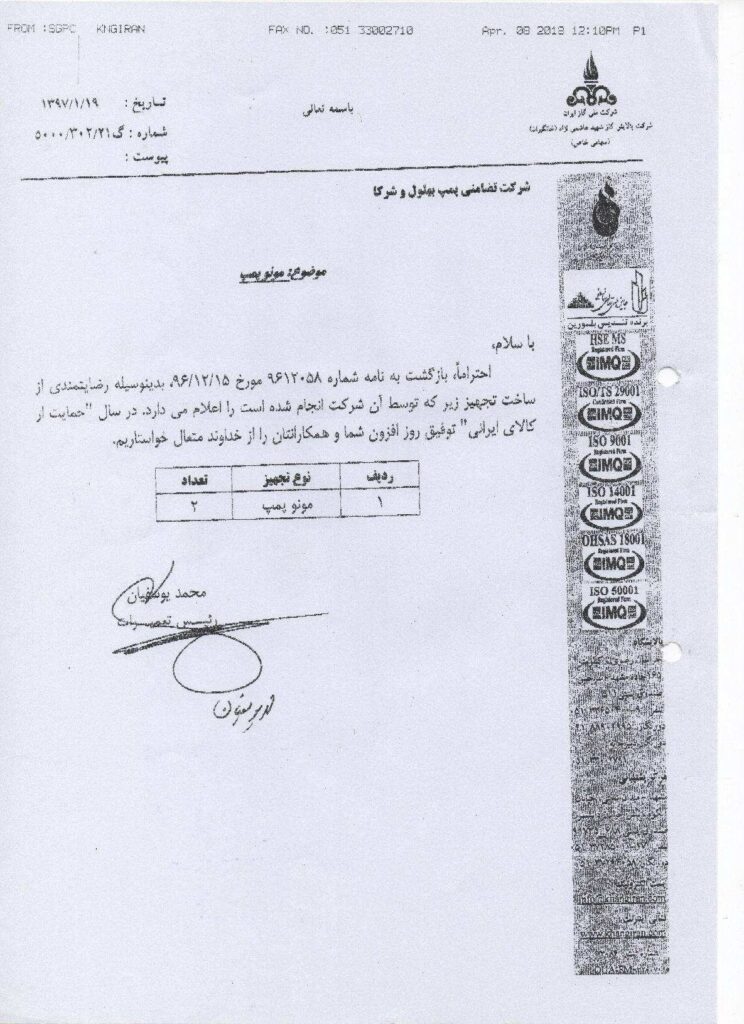 FROM :SGPC KNGIRAN FAX NO. :051 33002710 Apr. 08 2018 12:10PM P1
شرکت ملی گاز ایران
شرکت پالایش گاز شهید هاشمی نژاد (خانگیران)
(سهامی خاص)
باسمه تعالی
تاریخ : ۱۳۹۷/۱/۱۹
شماره : گ۵۰۰۰/۳۰۲/۲۱
پیوست :
شرکت تضامنی پمپ بهلول و شرکا
موضوع: مونو پمپ
با سلام،
احتراماً، بازگشت به نامه شماره ۹۶۱۲۰۵۸ مورخ ۹۶/۱۲/۱۵، بدینوسیله رضایتمندی از
ساخت تجهیز زیر که توسط آن شرکت انجام شده است را اعلام می دارد. در سال "حمایت از
کالای ایرانی" توفیق روز افزون شما و همکارانتان را از خداوند متعال خواستاریم.
ردیف نوع تجهیز تعداد
۱ مونو پمپ ۲
محمد یوسفیان
رئیس تعمیرات
برنده تندیس بلورین
HSE MS
Registered Firm
IMQ
ISO/TS 29001
IMQ
ISO 9001
Registered Firm
IMQ
ISO 14001
Registered Firm
IMQ
OHSAS 18001
Registered Firm
IMQ
ISO 50001
Registered Firm
IMQ
پالایشگاه
www.khangiran.com